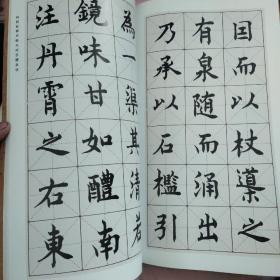 囙而以杖導之
有泉随而涌出
乃承以石檻引
為一渠其清若
鏡味甘如醴南
注丹霄之右東